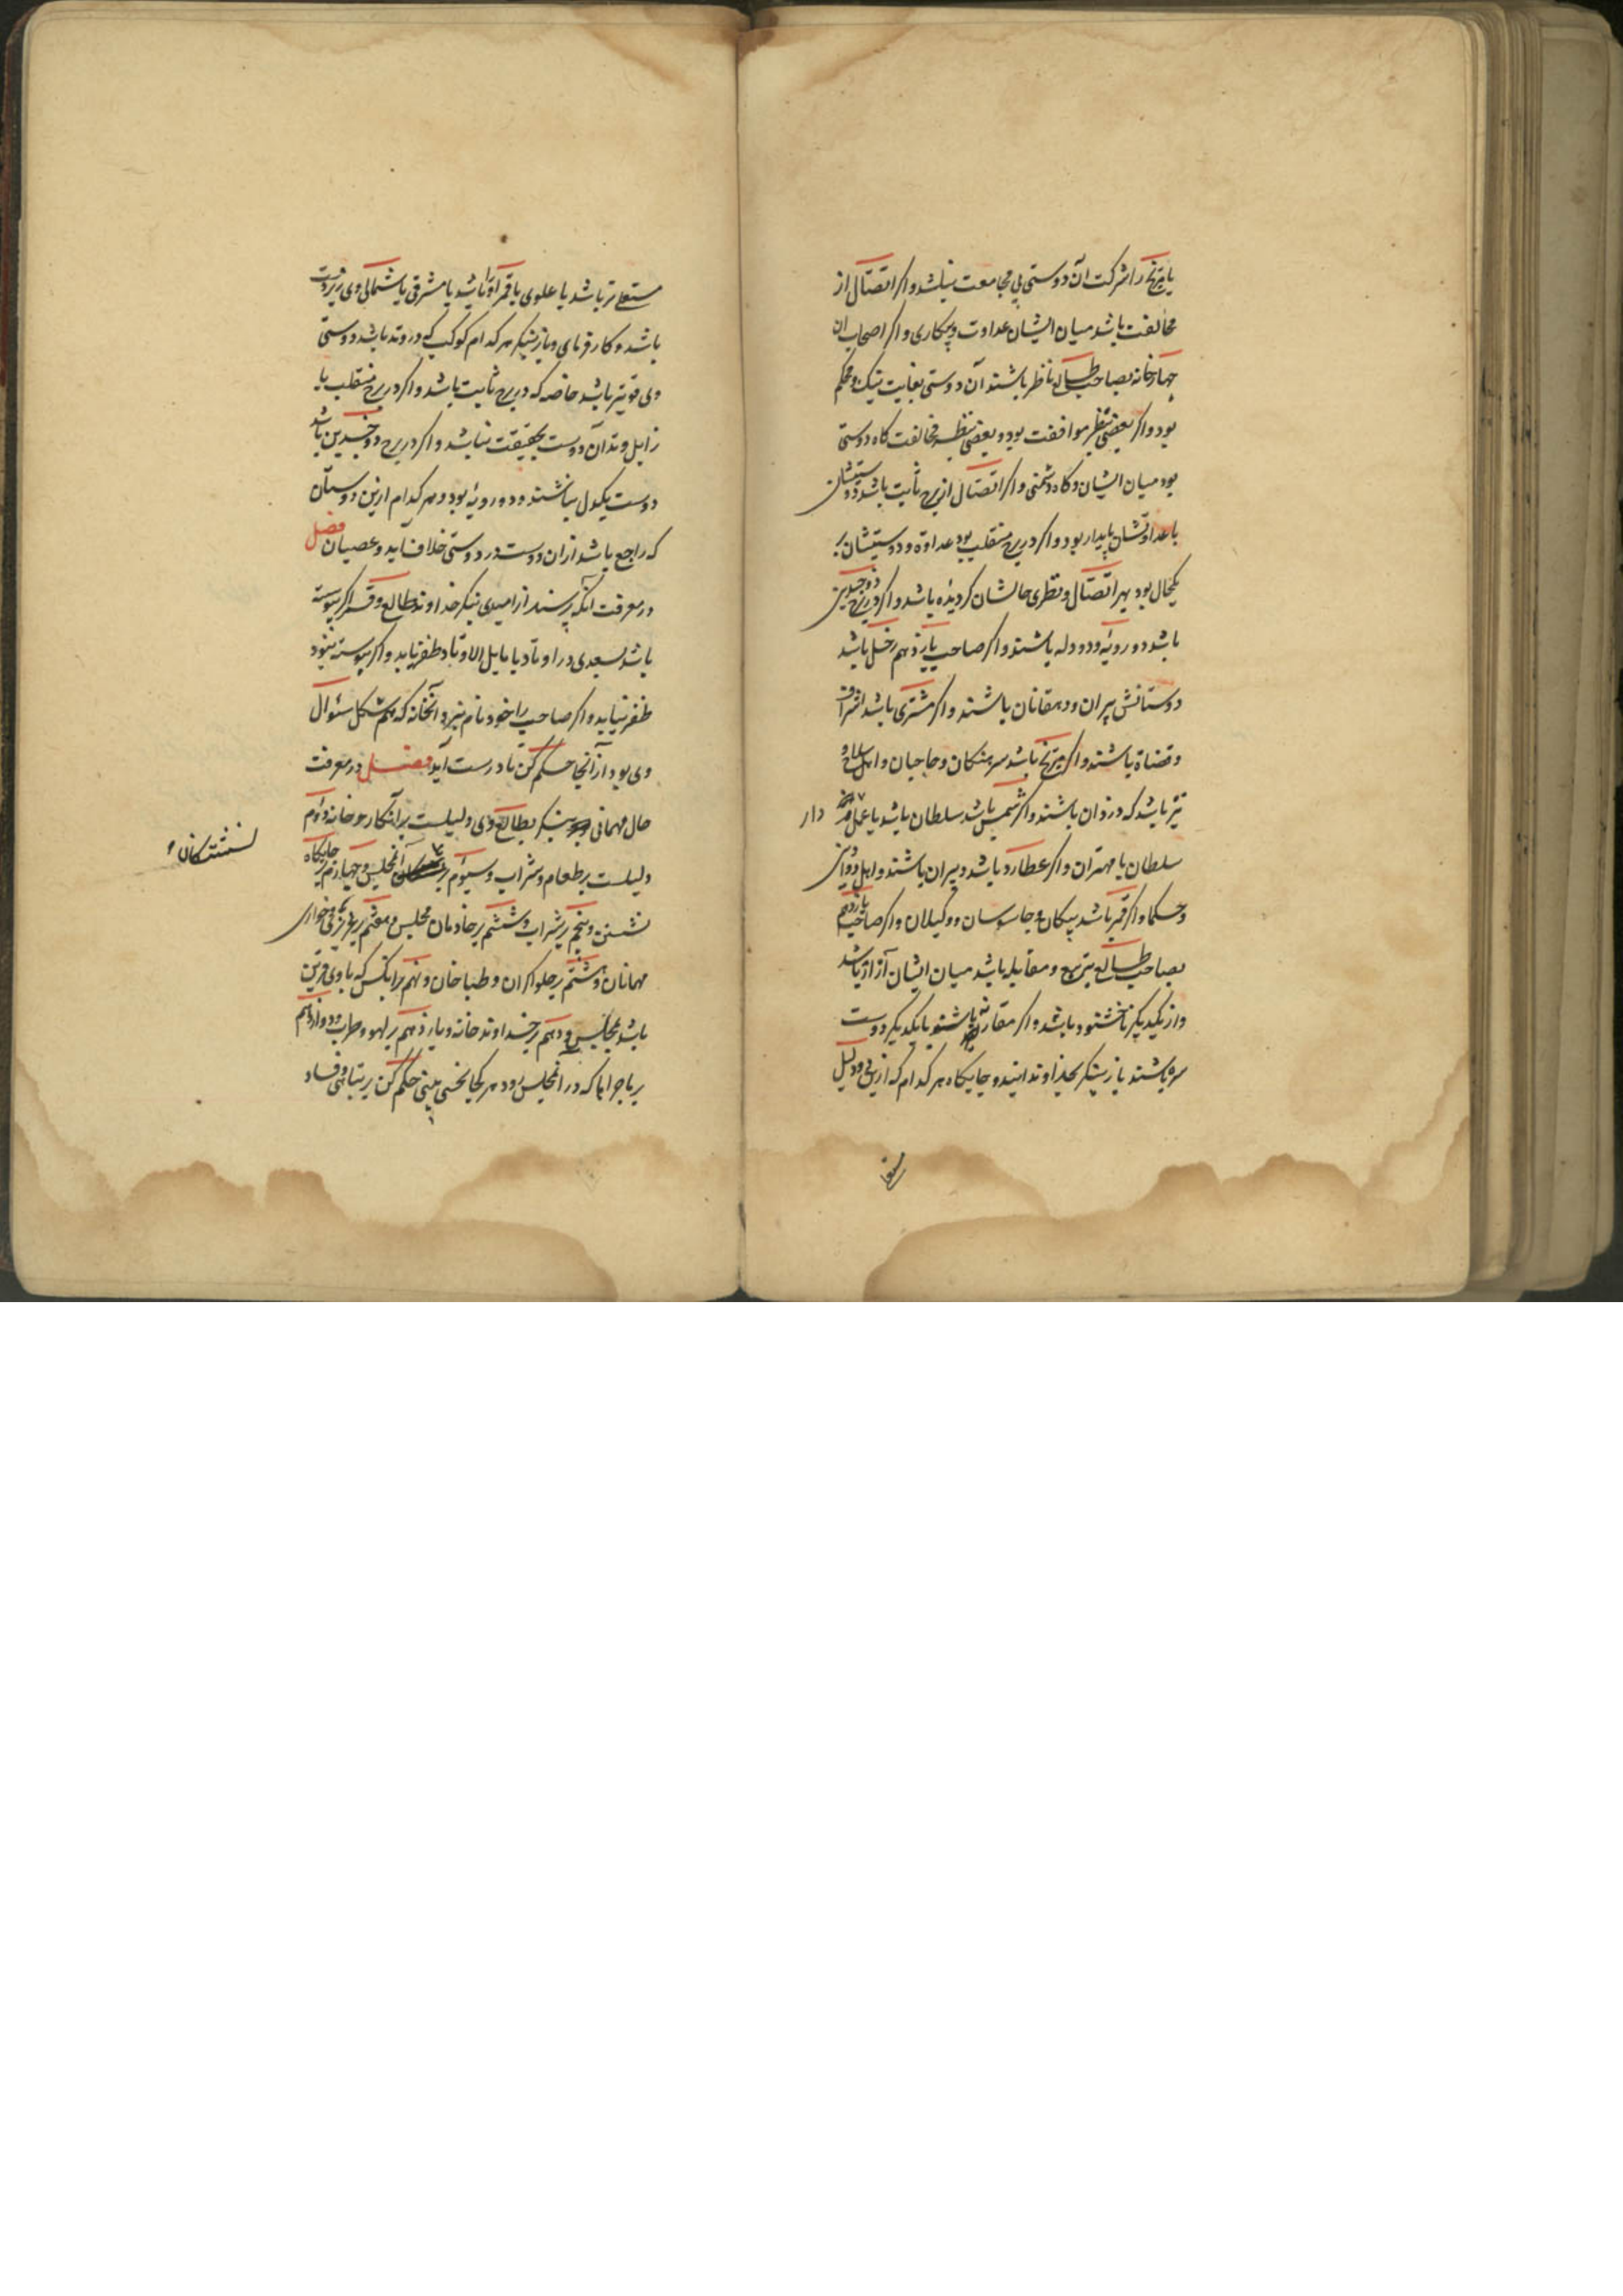 یا مریخ را شرکت آن دوستی بی مجامعت نباشد و اکر اتصال از
مخالفت باشد میان ایشان عداوت و پیکاری و اکر اصحاب ان
چهار خانه بصاحب طالع ناظر باشند آن دوستی بغایت نیک و محکم
بود و اکر بعضی بنظر موافقت بود و بعضی بنظر مخالفت کاه دوستی
بود میان ایشان و کاه دشمنی و اکر اتصال از برج ثابت باشد دوستیشان
یا عداوتشان پایدار بود و اکر در برج منقلب بود عداوة و دوستیشان بر
یکحال بود بهر اتصال و نظری حالشان کردیده باشد و اکر در برج ذو جسدین
باشد دو رویه و دو دله باشند و اکر صاحب یازدهم زحل باشد
دوستانش پیران و دهقانان باشند و اکر مشتری باشد اشراف
و قضاة باشند و اکر مریخ باشد سرهنکان و حاجبان و اهل سلاح و
نیز باشد که دزدان باشند و اکر شمس باشد سلطان باشد یا عمل دار
سلطان یا مهتران و اکر عطارد باشد دبیران باشند و اهل دواوین
و حکما و اکر قمر باشد پیکان و جاسوسان و وکیلان و اکر صاحب یازدهم
بصاحب طالع بتربیع و مقابله باشد میان ایشان آزار باشد
و از یکدیکر ناخشنود باشد و اکر مقارنه باشند با یکدیکر دوست
سره باشند باز بنکر بخداوندانیند و جایکاه هر کدام که ازین دو دلیل
مستعلی تر باشد یا علوی یا قمر او را باشد یا مشرقی یا شمالی وی زبردست
باشد و کار فرمای و باز بنیکر هر کدام کوکب که در وتد باشد دوستی
وی قویتر باشد خاصه که در برج ثابت باشد و اکر در برج منقلب یا
زایل وتد آن دوست بحقیقت نباشد و اکر در برج ذو جسدین باشد
دوست یکدل نباشند و دو رویه بود و هر کدام ازین دوستان
که راجع باشد ازان دوست در دوستی خلاف آید و عصیان فصل
در معرفت انکه پرسند از امیدی بنیکر خداوند طالع و قمر اکر پیوسته
باشد بسعدی در اوتاد یا مایل الاوتاد ظفر یابد و اکر پیوسته نبود
ظفر نیابد و اکر صاحب را خود نام نبرد آنخانه که هم شکل سئوال
وی بود از آنجا حکم کن تا درست آید فصل در معرفت
حال مهمانی بنیکر بطالع وی دلیلست بر آنکار و خانه دوم
دلیلست بر طعام و شراب و سیوم بر نشستکان آنمجلس و چهارم بر جایکاه
نشستن و پنجم بر شراب و ششم بر خادمان مجلس و هفتم بر
مهمانان و هشتم بر حلواکران و طباخان و نهم بر انکس که با وی قرین
باشد بمجلس و دهم بر خداوند خانه و یازدهم بر لهو و طرب و دوازدهم
بر ماجراها که در آنمجلس رود هر کجا نحسی بینی حکم کن بر تباهی و فساد